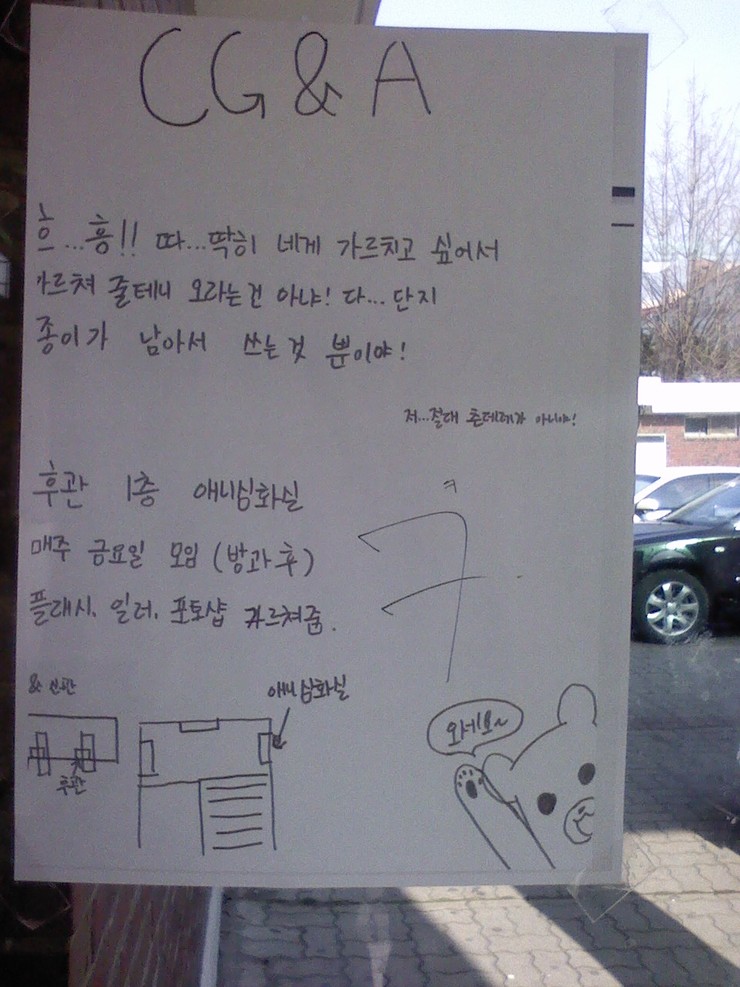 CG & A
흐...흥!! 따...딱히 네게 가르치고 싶어서
가르쳐 줄테니 오라는건 아냐! 다... 단지
종이가 남아서 쓰는것 뿐이야!
저...절대 츤데레가 아니야!
후관 1층 애니심화실
매주 금요일 모임 (방과후)
플래시, 일러, 포토샵 가르쳐줌.
ㅋ
ㅋ
신관
애니심화실
후관
오세요~